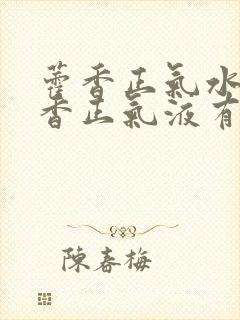 藿香正氣水
香正氣液有
陳春梅